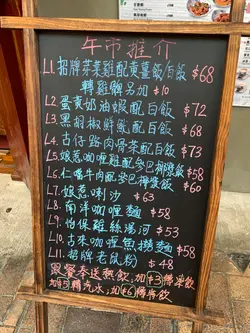 午市推介
L1. 招牌芽菜雞配黃薑飯/白飯 $68
轉雞髀另加 $10
L2. 蛋黃奶油蝦配白飯 $72
L3. 黑胡椒鮮魷配白飯 $68
L4. 古仔路肉骨茶配白飯 $73
L5. 娘惹咖喱雞配參巴椰漿飯 $58
L6. 仁噹牛肉配參巴椰漿飯 $60
L7. 娘惹喇沙 $63
L8. 南洋咖喱麵 $58
L9. 怡保雞絲湯河 $53
L10. 古來咖喱魚撈麵 $58
L11. 招牌老鼠粉 $48
跟餐奉送熱飲，加$3轉凍飲
加$5轉汽水，加$6轉特飲